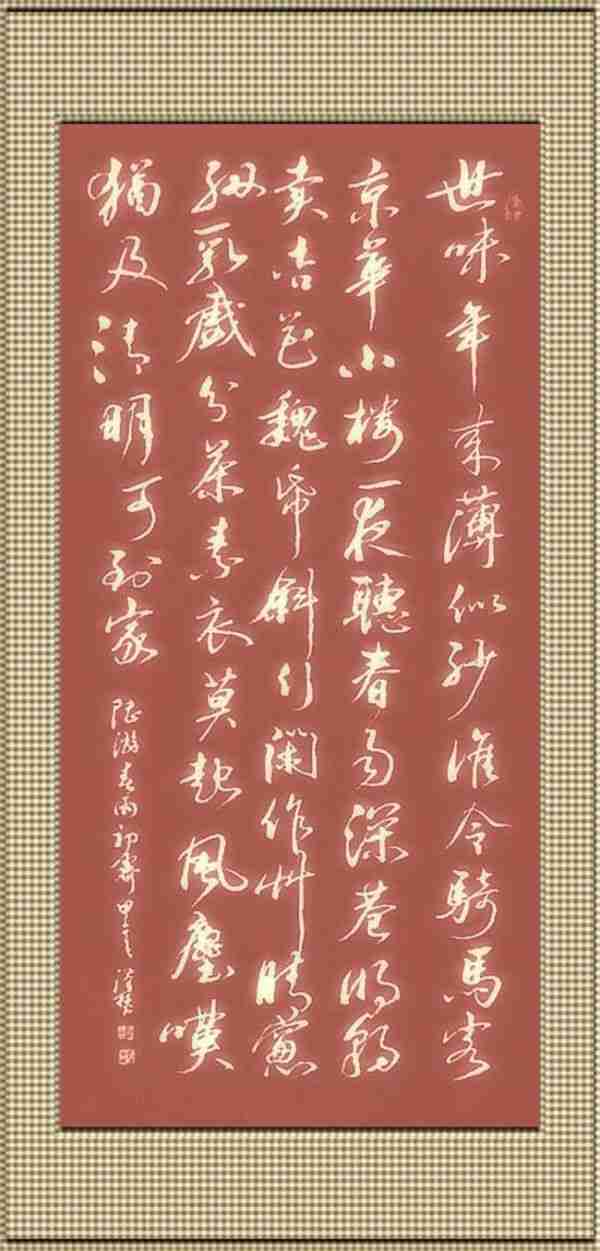 世味年来薄似紗誰令騎馬客
京華小樓一夜聽春雨深巷明朝
賣杏花矮帋斜行閑作艸晴窻
細乳戲分茶素衣莫起風塵嘆
猶及清明可到家
陸游春雨初霽